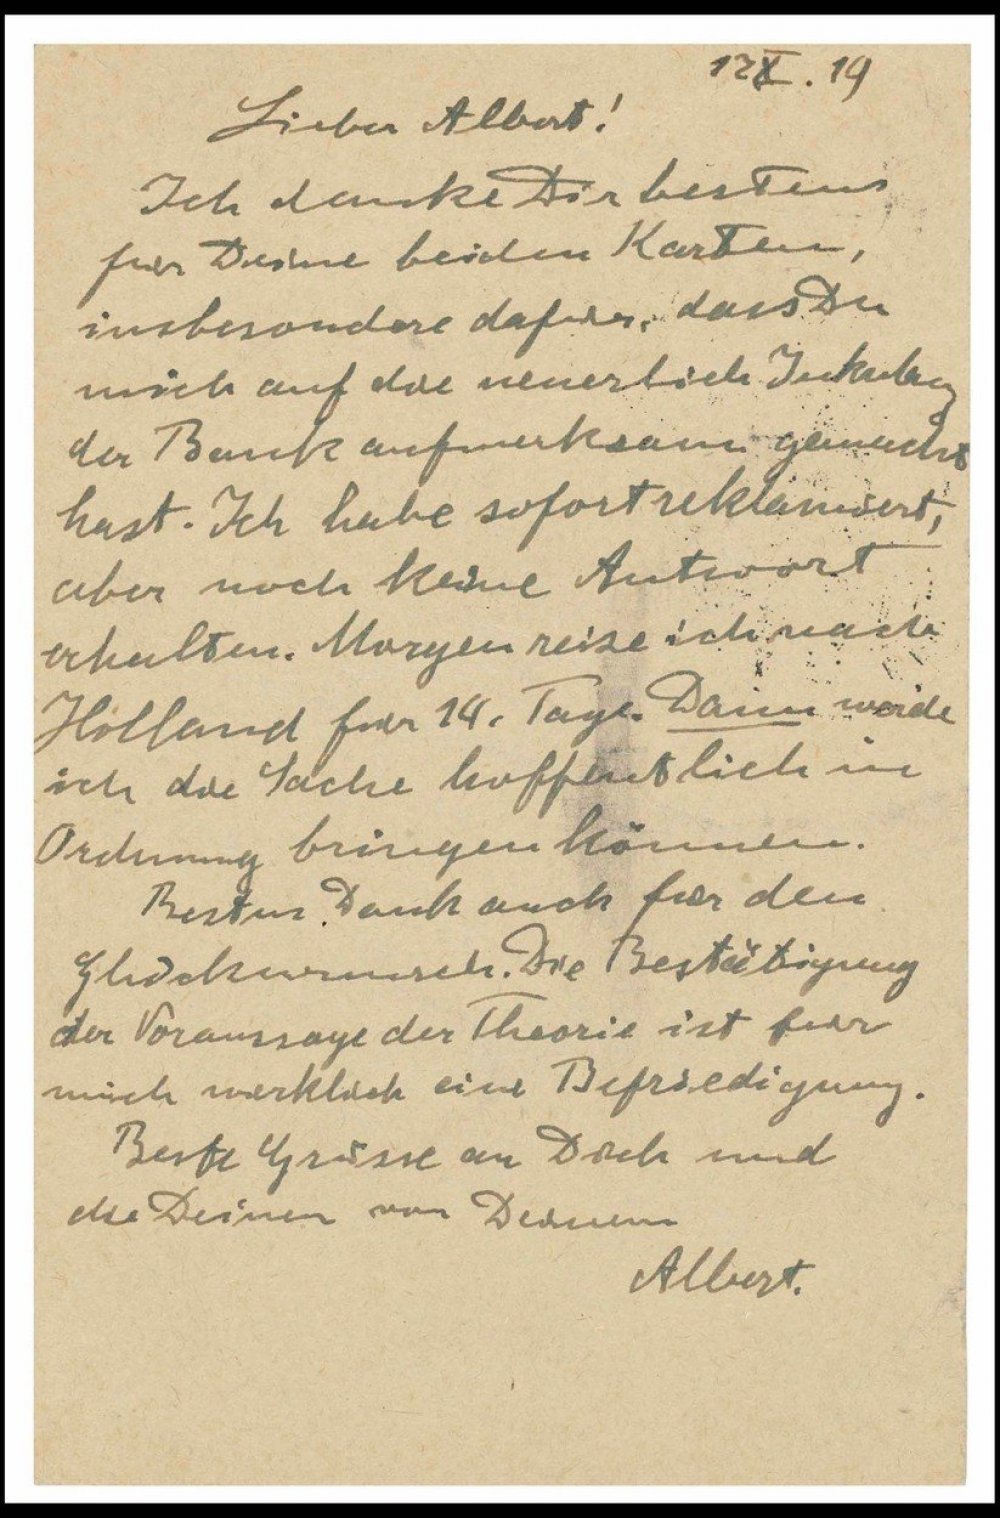 17 X. 19
Lieber Albert!
Ich danke Dir bestens
für Deine beiden Karten,
insbesondere dafür, dass Du
mich auf die neuerlich
der Bank aufmerksam gemacht
hast. Ich habe sofort reklamiert,
aber noch keine Antwort
erhalten. Morgen reise ich nach
Holland für 14. Tage. Dann werde
ich die Sache hoffentlich in
Ordnung bringen können.
Besten Dank auch für den
Glückwunsch. Die Bestätigung
der Voraussage der Theorie ist für
mich wirklich eine Befriedigung.
Beste Grüsse an Dich und
die Deinen von Deinem
Albert.